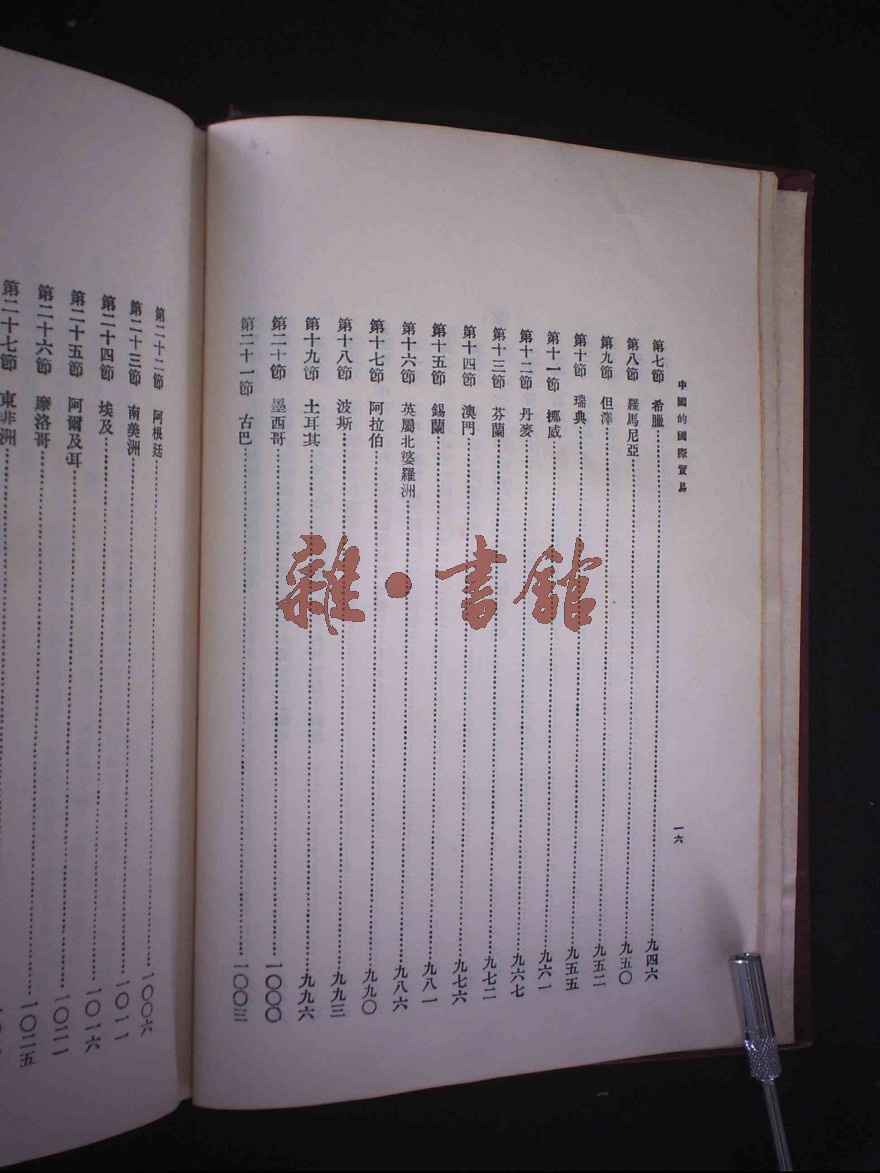 中國的國際貿易
一六
第七節 希臘 九四六
第八節 羅馬尼亞 九五〇
第九節 但澤 九五二
第十節 瑞典 九五五
第十一節 挪威 九六一
第十二節 丹麥 九六七
第十三節 芬蘭 九七二
第十四節 澳門 九七六
第十五節 錫蘭 九八一
第十六節 英屬北婆羅洲 九八六
第十七節 阿拉伯 九九〇
第十八節 波斯 九九三
第十九節 土耳其 九九六
第二十節 墨西哥 一〇〇〇
第二十一節 古巴 一〇〇三
第二十二節 阿根廷 一〇〇六
第二十三節 南美洲 一〇一一
第二十四節 埃及 一〇一六
第二十五節 阿爾及耳 一〇二一
第二十六節 摩洛哥 一〇二五
第二十七節 東非洲
雜·書館